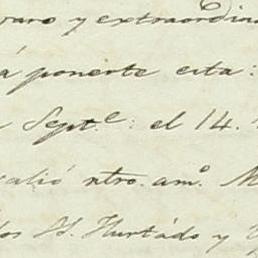 raro y extraordina
á ponerte esta:
Septe: el 14.
salió ntro. amo. M
los H. Hurtádo y